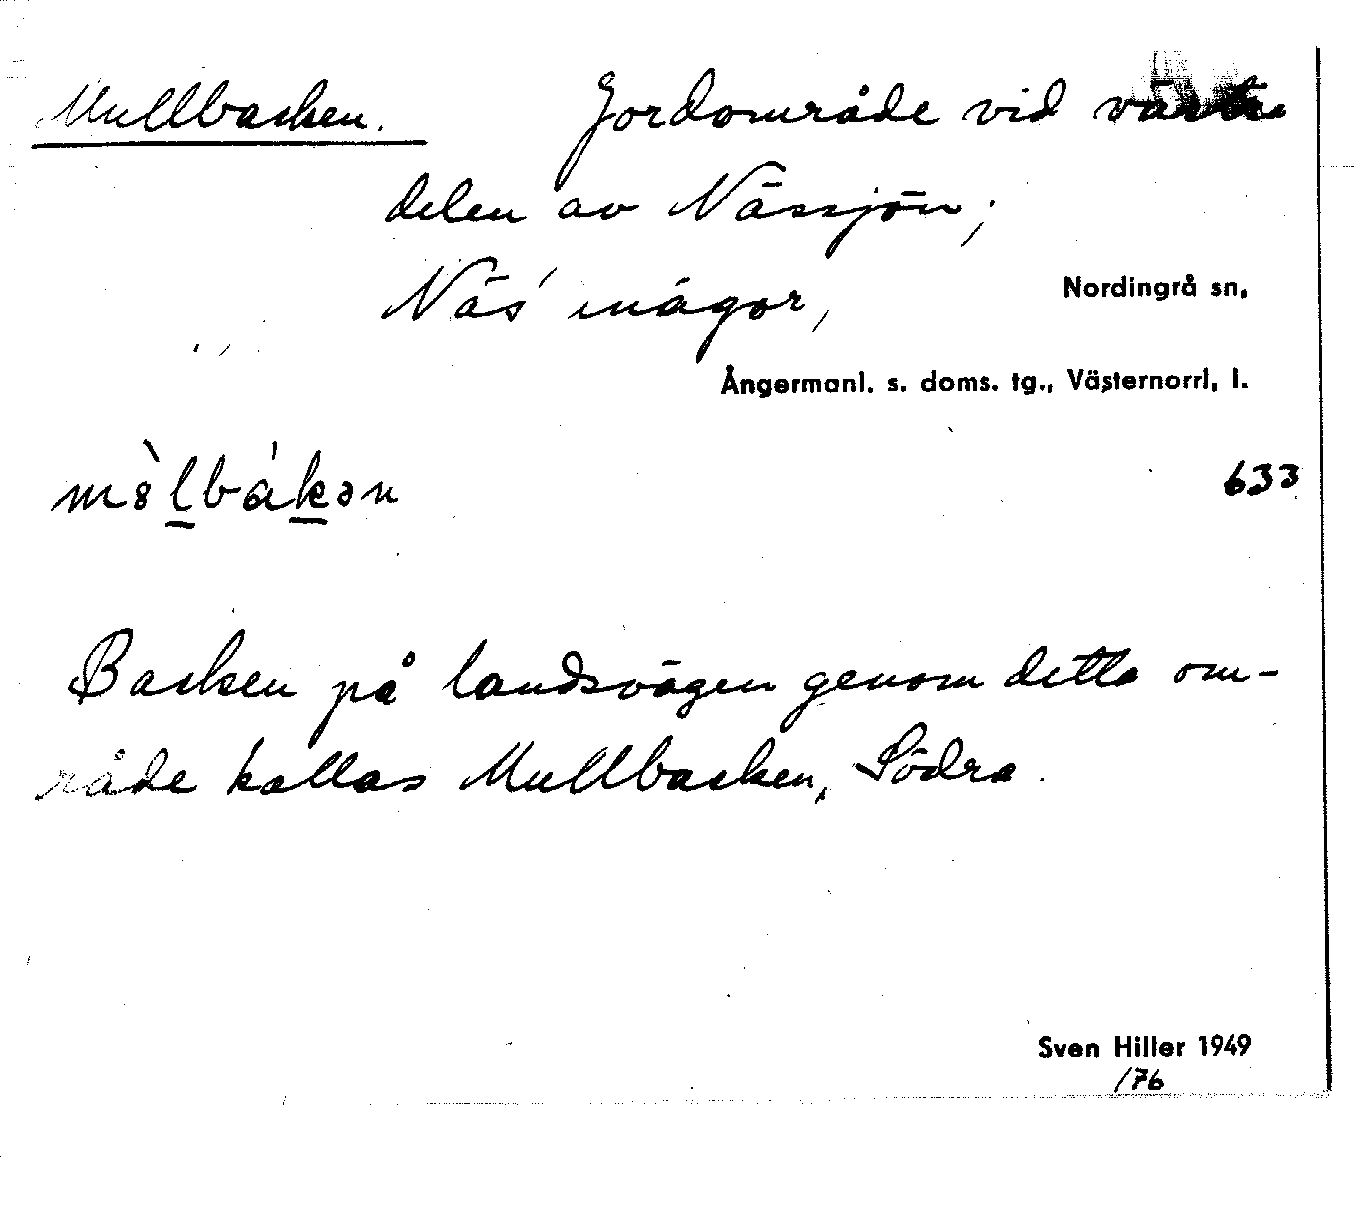 Mullbacken. Jordområde vid västra
delen av Nässjön;
Näs' inägor, Nordingrå sn,
Ångermanl. s. doms. tg., Västernorrl. l.
mòlbákən 633
Backen på landsvägen genom detta om-
råde kallas Mullbacken, Södra.
Sven Hiller 1949
/76